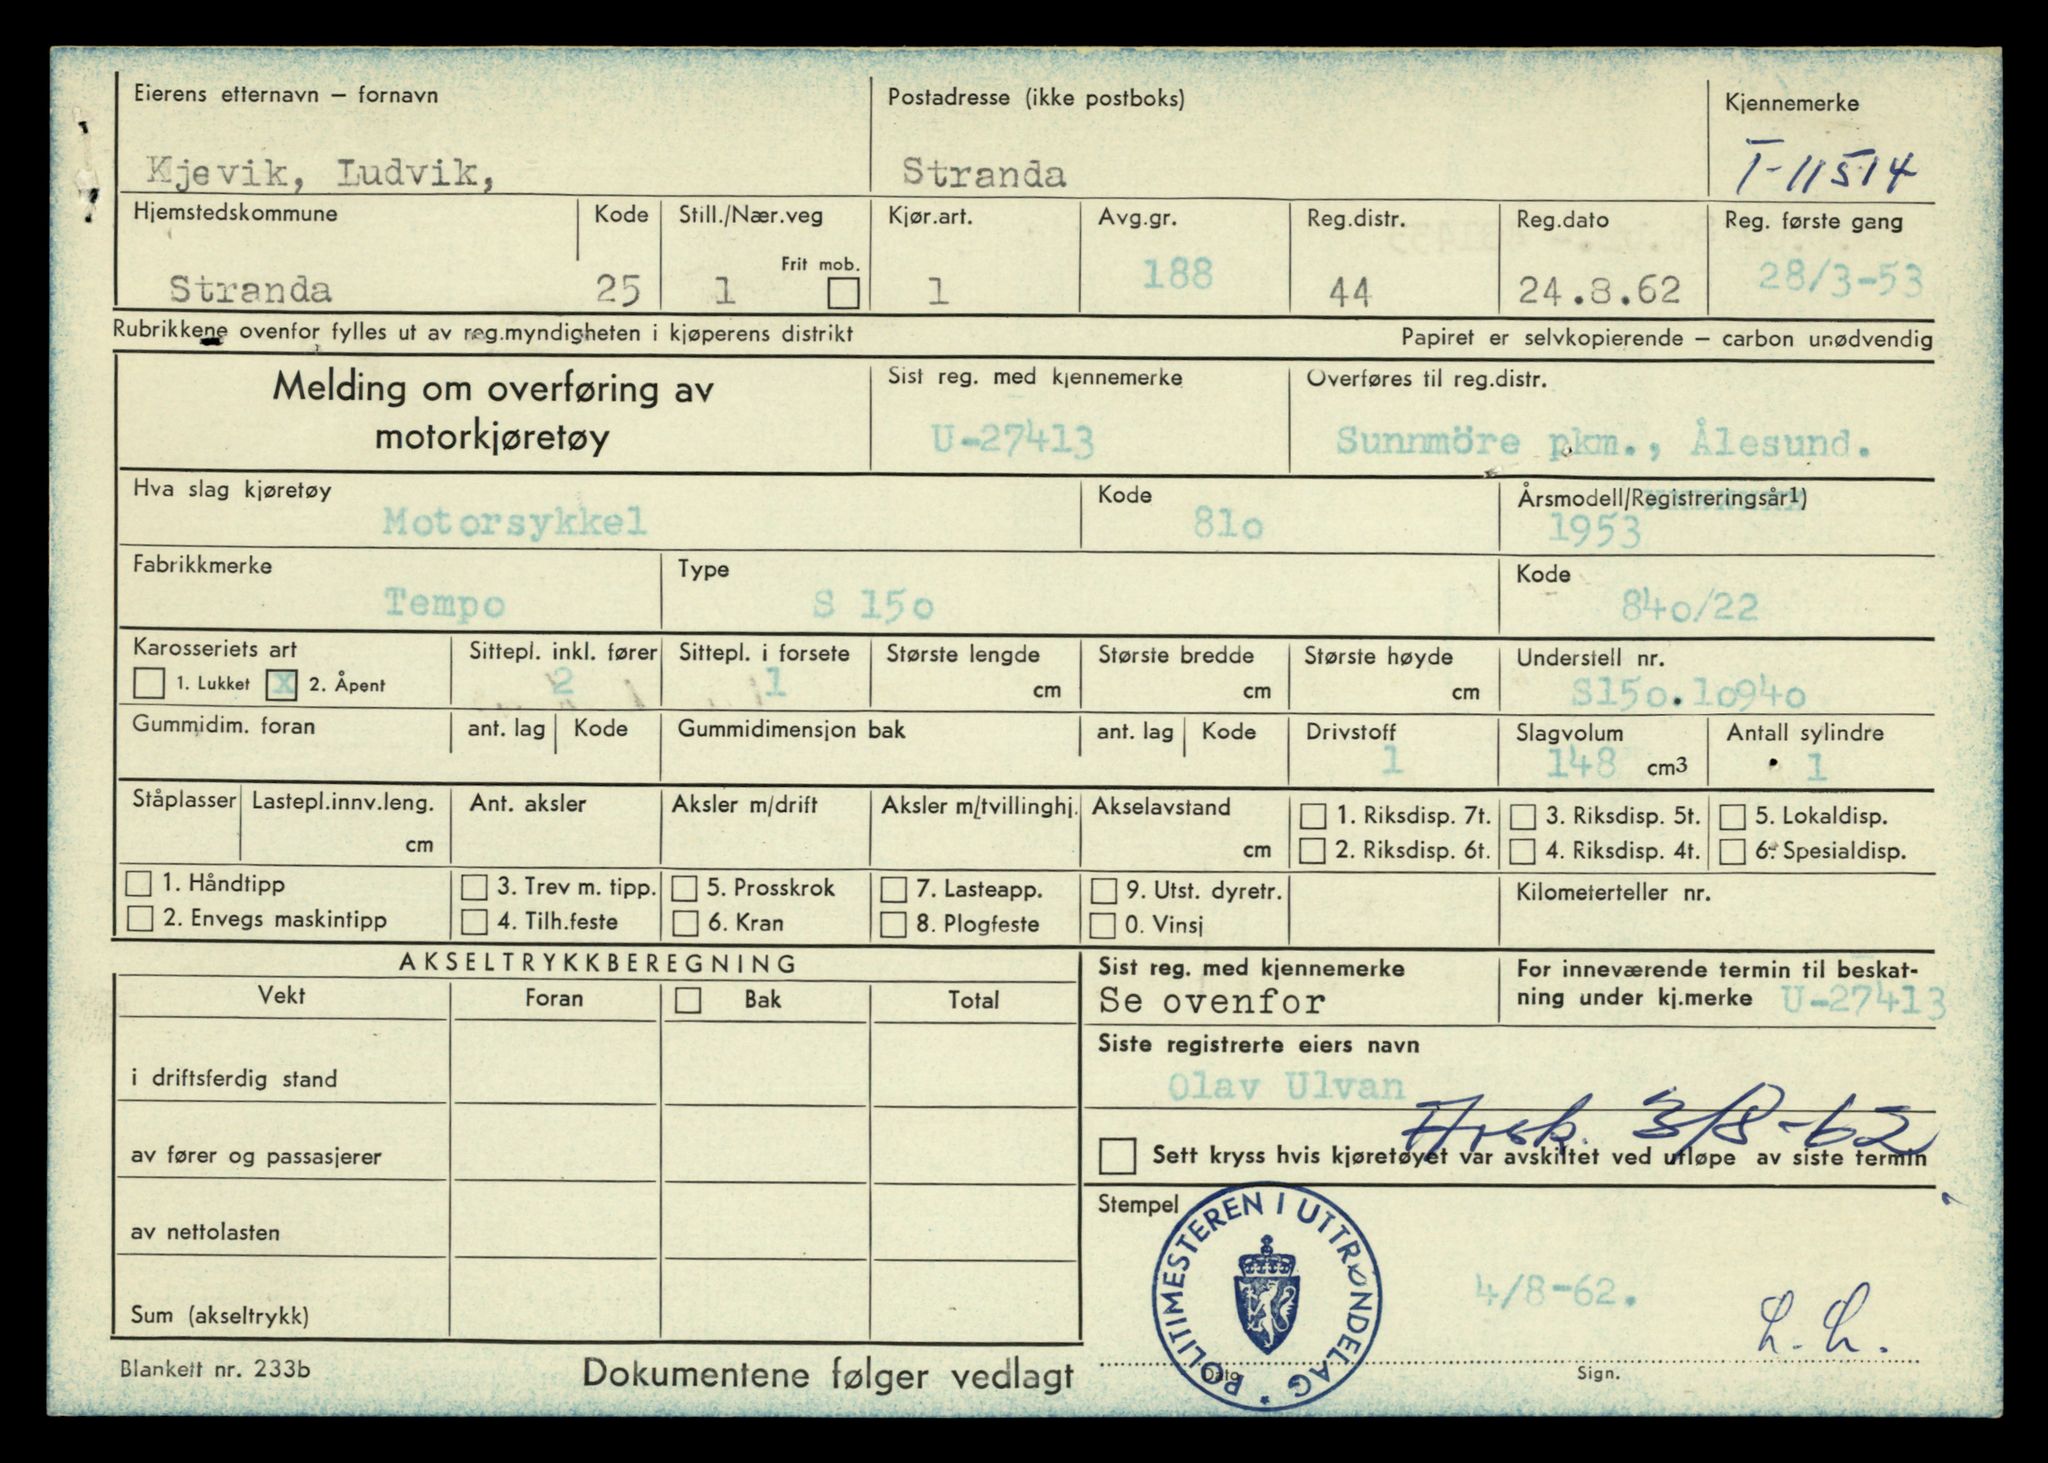 Eierens etternavn – fornavn Postadresse (ikke postboks) Kjennemerke
Kjevik, Ludvik, Stranda T-11514
Hjemstedskommune Kode Still./Nær.veg Kjør.art. Avg.gr. Reg.distr. Reg.dato Reg. første gang
Frit mob.
Stranda 25 1 1 188 44 24.8.62 28/3-53
Rubrikkene ovenfor fylles ut av reg.myndigheten i kjøperens distrikt Papiret er selvkopierende – carbon unødvendig
Melding om overføring av
motorkjøretøy
Sist reg. med kjennemerke Overføres til reg.distr.
U-27413 Sunnmöre pkm., Ålesund.
Hva slag kjøretøy Kode Årsmodell/Registreringsår1)
Motorsykkel 81o 1953
Fabrikkmerke Type Kode
Tempo S 15o 84o/22
Karosseriets art Sittepl. inkl. fører Sittepl. i forsete Største lengde Største bredde Største høyde Understell nr.
1. Lukket X 2. Åpent 2 1 cm cm cm S15o.1o94o
Gummidim. foran ant. lag Kode Gummidimensjon bak ant. lag Kode Drivstoff Slagvolum Antall sylindre
1 148 cm3 1
Ståplasser Lastepl.innv.leng. Ant. aksler Aksler m/drift Aksler m/tvillinghj. Akselavstand 1. Riksdisp. 7t. 3. Riksdisp. 5t. 5. Lokaldisp.
cm cm 2. Riksdisp. 6t. 4. Riksdisp. 4t. 6. Spesialdisp.
1. Håndtipp 3. Trev m. tipp. 5. Prosskrok 7. Lasteapp. 9. Utst. dyretr. Kilometerteller nr.
2. Envegs maskintipp 4. Tilh.feste 6. Kran 8. Plogfeste 0. Vinsj
AKSELTRYKKBEREGNING
Vekt Foran Bak Total
i driftsferdig stand
av fører og passasjerer
av nettolasten
Sum (akseltrykk)
Sist reg. med kjennemerke For inneværende termin til beskat-
Se ovenfor ning under kj.merke U-27413
Siste registrerte eiers navn
Olav Ulvan
3/8-62
Sett kryss hvis kjøretøyet var avskiltet ved utløpe av siste termin
Stempel
POLITIMESTEREN I UTTRØNDELAG *
4/8-62.
Dato Sign.
Blankett nr. 233b Dokumentene følger vedlagt